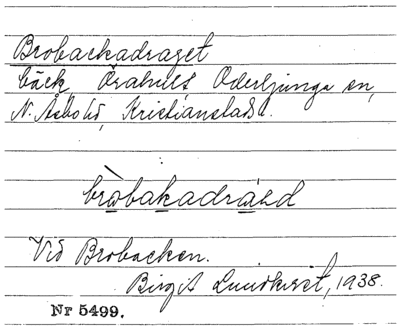 Brobackadraget
bäck, Örahult Oderljunga sn,
N. Åsbo hd, Kristianstads l.
bròbakadráəd
Vid Brobacken.
Birgit Lundkvist, 1938.
Nr 5499.